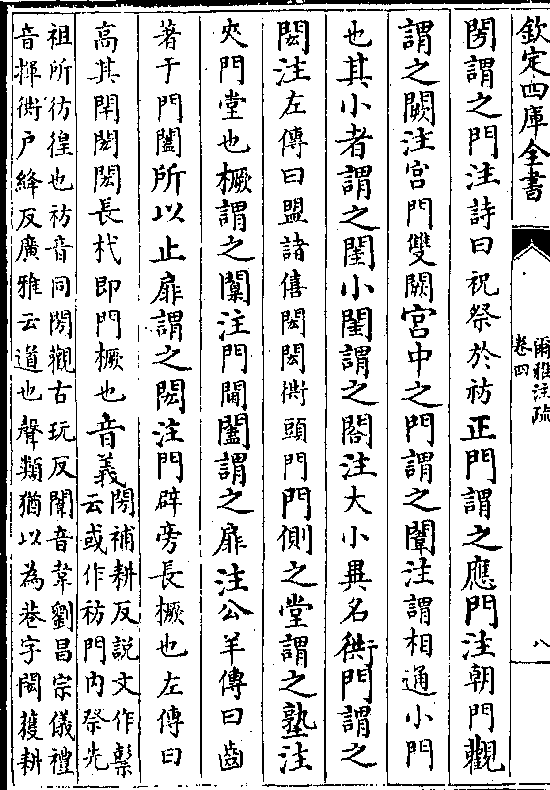 欽定四庫全書
爾雅注疏
卷四
八
閍謂之門注詩曰祝祭於祊正門謂之應門注朝門觀
謂之闕注宫門雙闕宫中之門謂之闈注謂相通小門
也其小者謂之閨小閨謂之閤注大小異名衖門謂之
閎注左傳曰盟諸僖閎閎衖頭門門側之堂謂之塾注
夾門堂也橛謂之闑注門閫闔謂之扉注公羊傳曰齒
著于門闔所以止扉謂之閎注門辟旁長橛也左傳曰
高其閈閎閎長杙即門橛也音義閍補耕反説文作䉾
云或作祊門内祭先
祖所彷徨也祊音同閍觀古玩反闈音韋劉昌宗儀禮
音揮衖户絳反廣雅云道也聲類猶以為巷字閎獲耕